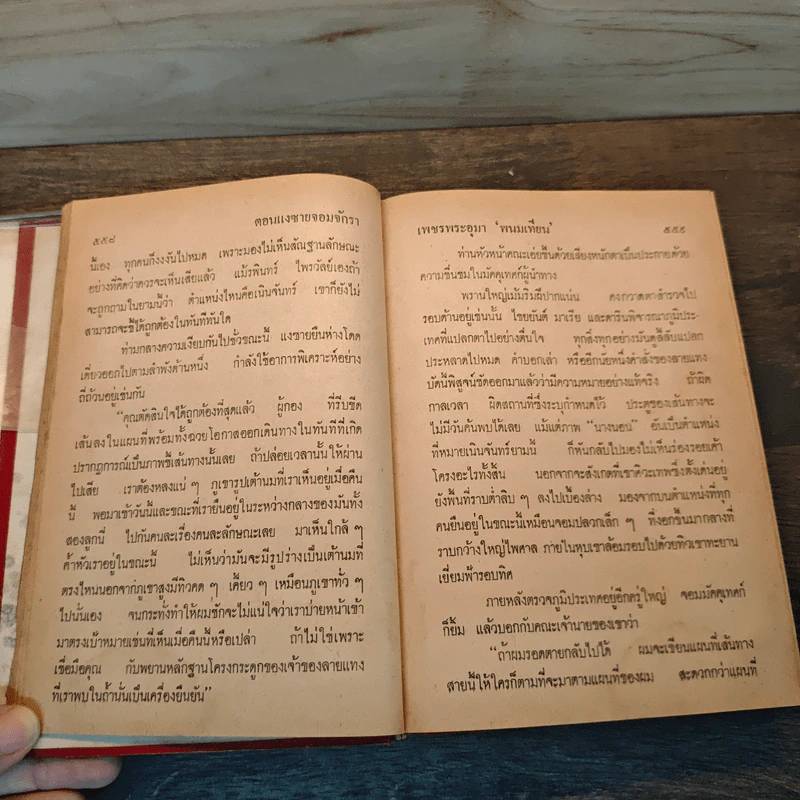 ๕๕๘
ตอนแงซายจอมจักรา
นี้เอง ทุกคนก็งงงันไปหมด เพราะมองไม่เห็นสัณฐานลักษณะ
อย่างที่คิดว่าควรจะเห็นเสียแล้ว แม้รพินทร์ ไพรวัลย์เองถ้า
จะถูกถามในยามนี้ว่า ตำแหน่งไหนคือเนินจันทร์ เขาก็ยังไม่
สามารถจะชี้ได้ถูกต้องในทันทีทันใด
ท่ามกลางความเงียบกันไปชั่วขณะนี้ แงซายยืนห่างโดด
เดี่ยวออกไปตามลำพังด้านหนึ่ง กำลังใช้อาการพิเคราะห์อย่าง
ถี่ถ้วนอยู่เช่นกัน
“คุณตัดสินใจได้ถูกต้องที่สุดแล้ว ผู้กอง ที่รีบขีด
เส้นลงในแผนที่พร้อมทั้งฉวยโอกาสออกเดินทางในทันทีที่เกิด
ปรากฏการณ์เป็นภาพชี้เส้นทางนั้นเลย ถ้าปล่อยเวลานั้นให้ผ่าน
ไปเสีย เราต้องหลงแน่ ๆ ภูเขารูปเต้านมที่เราเห็นอยู่เมื่อคืน
นี้ พอมาเช้าวันนี้และขณะที่เรายืนอยู่ในระหว่างกลางของมันทั้ง
สองลูกนี่ ไปกันคนละเรื่องคนละลักษณะเลย มาเห็นใกล้ ๆ
ค้ำหัวเราอยู่ในขณะนี้ ไม่เห็นว่ามันจะมีรูปร่างเป็นเต้านมที่
ตรงไหนนอกจากภูเขาสูงมีทิวคด ๆ เคี้ยว ๆ เหมือนภูเขาทั่ว ๆ
ไปนั่นเอง จนกระทั่งทำให้ผมชักจะไม่แน่ใจว่าเราบ่ายหน้าเข้า
มาตรงเป้าหมายเช่นที่เห็นเมื่อคืนนี้หรือเปล่า ถ้าไม่ใช่เพราะ
เชื่อมือคุณ กับพยานหลักฐานโครงกระดูกของเจ้าของลายแทง
ที่เราพบในถ้ำนั่นเป็นเครื่องยืนยัน”
เพชรพระอุมา ‘พนมเทียน’
๕๕๙
ท่านหัวหน้าคณะเอ่ยขึ้นด้วยเสียงหนักตาเป็นประกายด้วย
ความชื่นชมในมัคคุเทศก์ผู้นำทาง
พรานใหญ่เม้มริมฝีปากแน่น คงกวาดตาสำรวจไป
รอบด้านอยู่เช่นนั้น ไชยยันต์ มาเรีย และดารินพิจารณาภูมิประ-
เทศที่แปลกตาไปอย่างตื่นใจ ทุกสิ่งทุกอย่างมันดูลี้ลับแปลก
ประหลาดไปหมด คำบอกเล่า หรืออีกนัยหนึ่งคำสั่งของลายแทง
บัดนี้พิสูจน์ชัดออกมาแล้วว่ามีความหมายอย่างแท้จริง ถ้าผิด
กาลเวลา ผิดสถานที่ซึ่งระบุกำหนดไว้ ประตูของเส้นทางจะ
ไม่มีวันค้นพบได้เลย แม้แต่ภาพ “นางนอน” อันเป็นตำแหน่ง
ที่หมายเนินจันทร์ยามนี้ ก็หันกลับไปมองไม่เห็นร่องรอยเค้า
โครงอะไรทั้งสิ้น นอกจากจะสังเกตที่เขาศิวะเทพซึ่งตั้งเด่นอยู่
ยังพื้นที่ราบต่ำลิบ ๆ ลงไปเบื้องล่าง มองจากบนตำแหน่งที่ทุก
คนยืนอยู่ในขณะนี้เหมือนจอมปลวกเล็ก ๆ ที่งอกขึ้นมากลางที่
ราบกว้างใหญ่ไพศาล ภายในหุบเขาล้อมรอบไปด้วยทิวเขาทะยาน
เยี่ยมฟ้ารอบทิศ
ภายหลังตรวจภูมิประเทศอยู่อีกครู่ใหญ่ จอมมัคคุเทศก์
ก็ยิ้ม แล้วบอกกับคณะเจ้านายของเขาว่า
“ถ้าผมรอดตายกลับไปได้ ผมจะเขียนแผนที่เส้นทาง
สายนี้ให้ใครก็ตามที่จะมาตามแผนที่ของผม สะดวกกว่าแผนที่